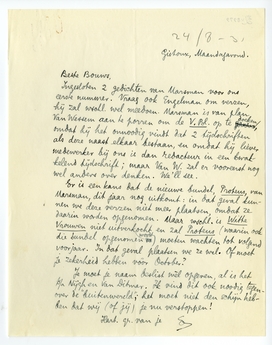 24/8-31
Gistoux, Maandagavond.
Beste Bouws,
Ingesloten 2 gedichten van Marsman voor ons
eerste nummer. Vraag ook Engelman om verzen,
hij zal wel meedoen. Marsman is van plan
Van Wessem aan te porren om de V.Bl. op te
omdat hij het onnoodig vindt dat 2 tijdschriften
als deze naast elkaar bestaan, en omdat hij liever
medewerker bij ons is dan redacteur in een
tijdschrift; maar Van W. zal er voorloopig nog
wel anders over denken. We'll see.
Er is een kans dat de nieuwe bundel, Porta, van
Marsman, dit jaar nog uitkomt: in dat geval kun-
nen we deze verzen niet meer plaatsen, omdat ze
daarin worden opgenomen. Maar wordt, als Witte
Vrouwen niet uitverkocht is, zal (waarin ook
die bundel opgenomen) moeten wachten tot volgend
voorjaar. In dat geval plaatsen we ze wel. Of moet
je zekerheid hebben vóór October?
Je moet je naam beslist mêe opgeven, al is het
bij Nijgh en Van Ditmar. Ik vind dit ook noodig tegen-
over de buitenwereld; het moet niet den schijn heb-
ben dat wij (of jij) je nu verstoppen!
Hart. gr. van je